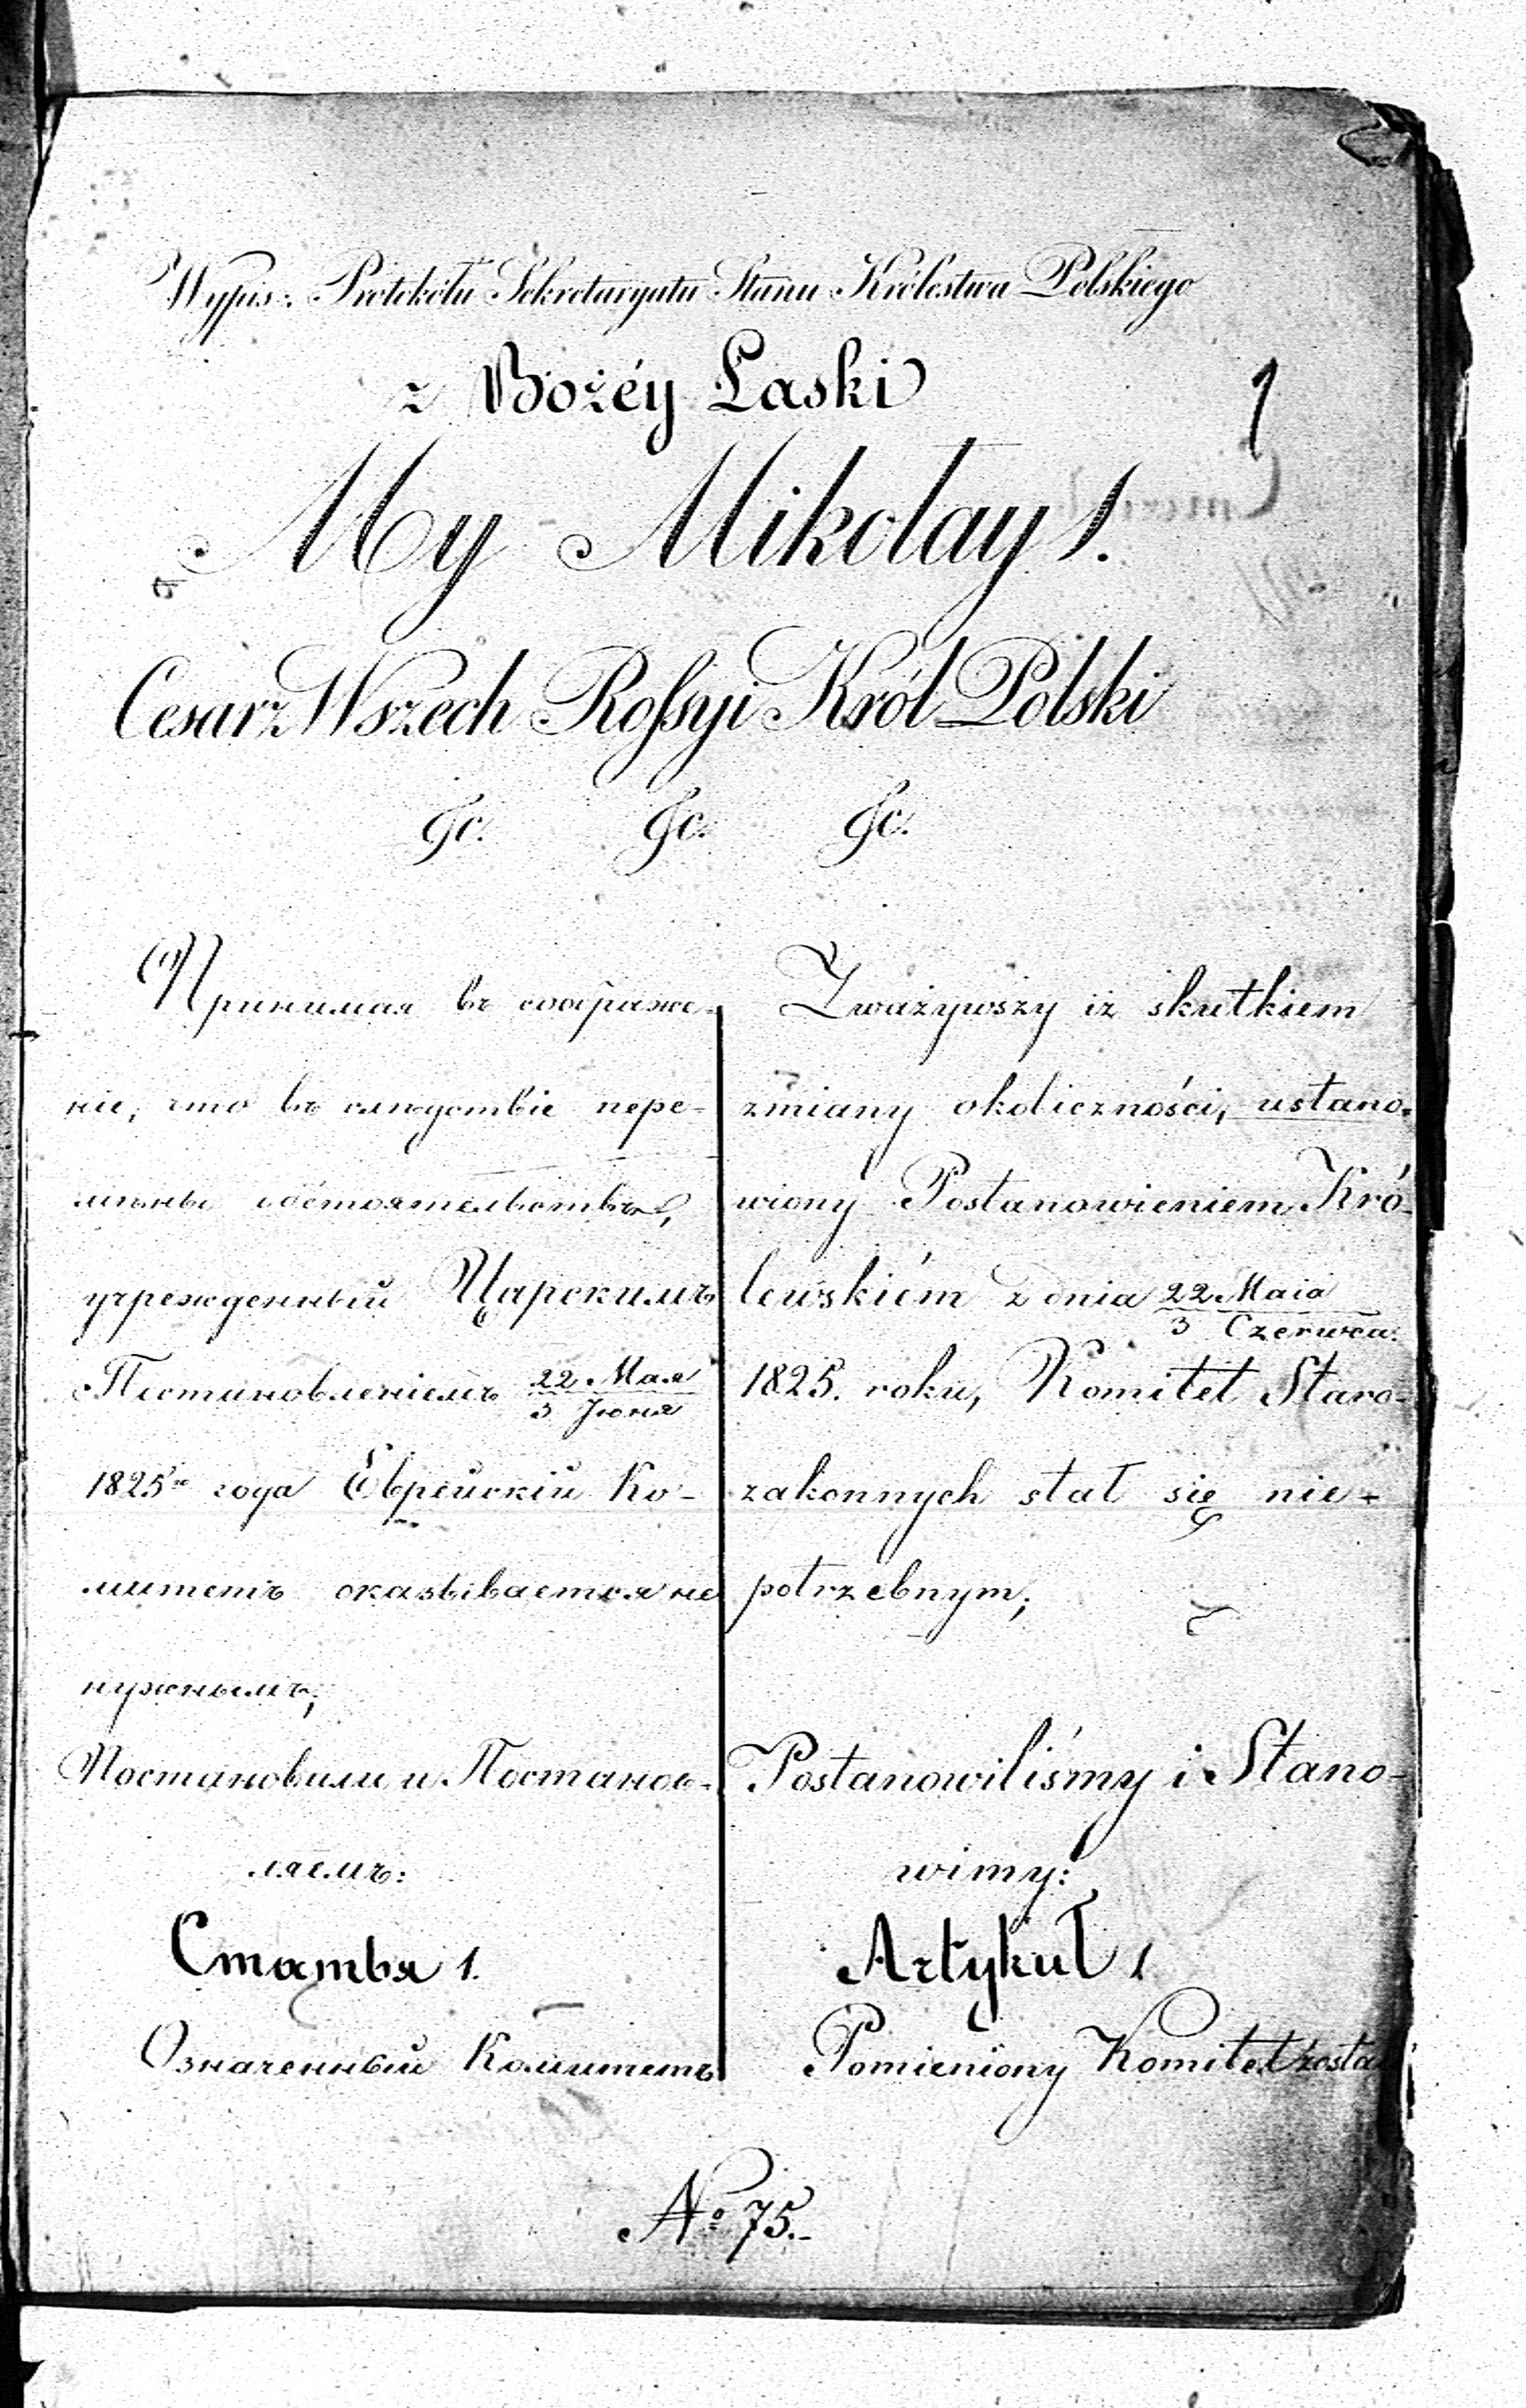 Wypis: Protokółu Sekretaryatu Stanu Królestwa Polskiego
z Bożéy Łaski
1
My Mikołay I.
Cesarz Wszech Rossyi Król Polski
&c. &c. &c.
Принимая въ соображе-
ніе, что въ слѣдствіе пере-
мѣны обстоятельствъ,
учрежденный Царскимъ
Постановленіемъ 22 Мая
3 Іюня
1825го года Еврейскій Ко-
митетъ оказывается не
нужнымъ;
Постановили и Постанов-
ляемъ:
Статья 1.
Означенный Комитетъ
Zważywszy iż skutkiem
zmiany okoliczności, ustano-
wiony Postanowieniem Kró-
lewskiém z dnia 22 Maia
3 Czerwca
1825. roku, Komitet Staro-
zakonnych stał się nie-
potrzebnym;
Postanowiliśmy i Stano-
wimy:
Artykuł 1
Pomieniony Komitet zosta
No 75.